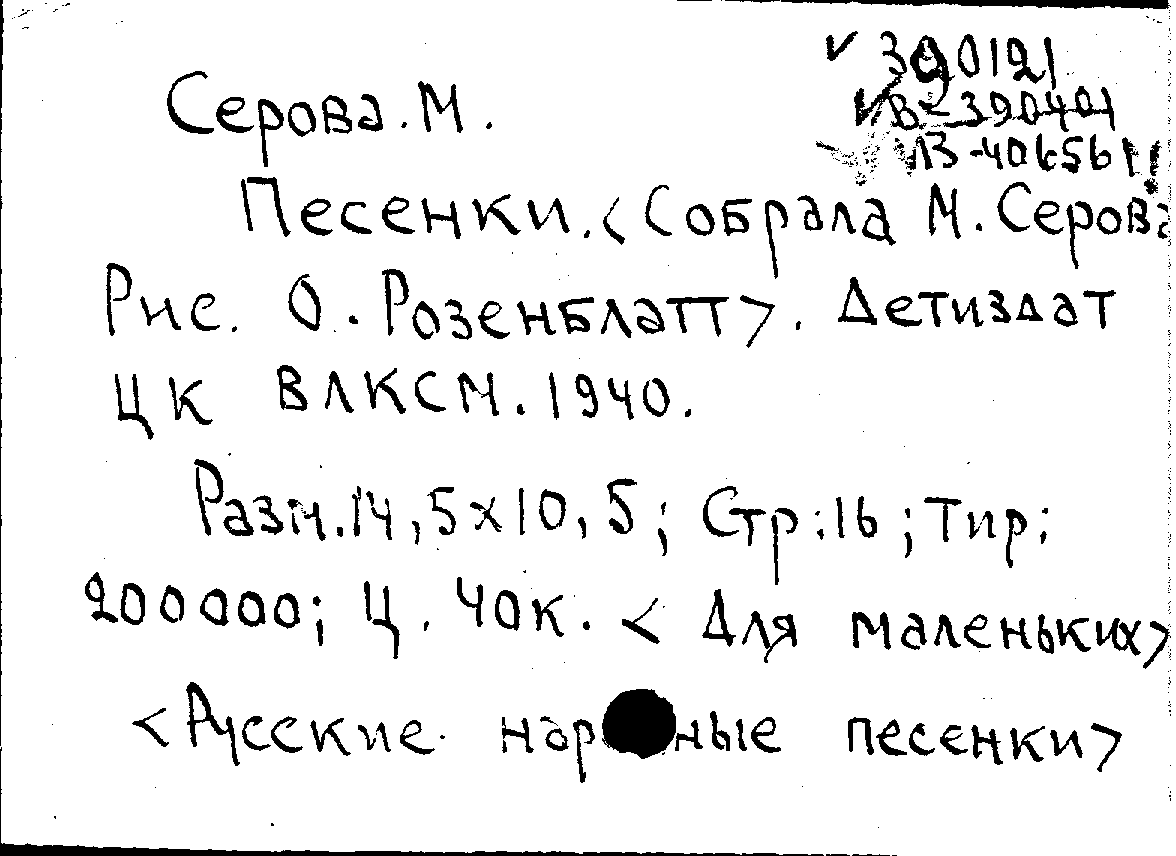 390121
Серова.М.
В-390401
Песенки.<Собрала М. Серова
Рис. О. Розенблатт>. Детиздат
ЦК ВЛКСМ.1940.
Разм.14,5х10,5; Стр:16; Тир:
200000; Ц. 40к. <Для маленьких>
<Русские нар ные песенки>